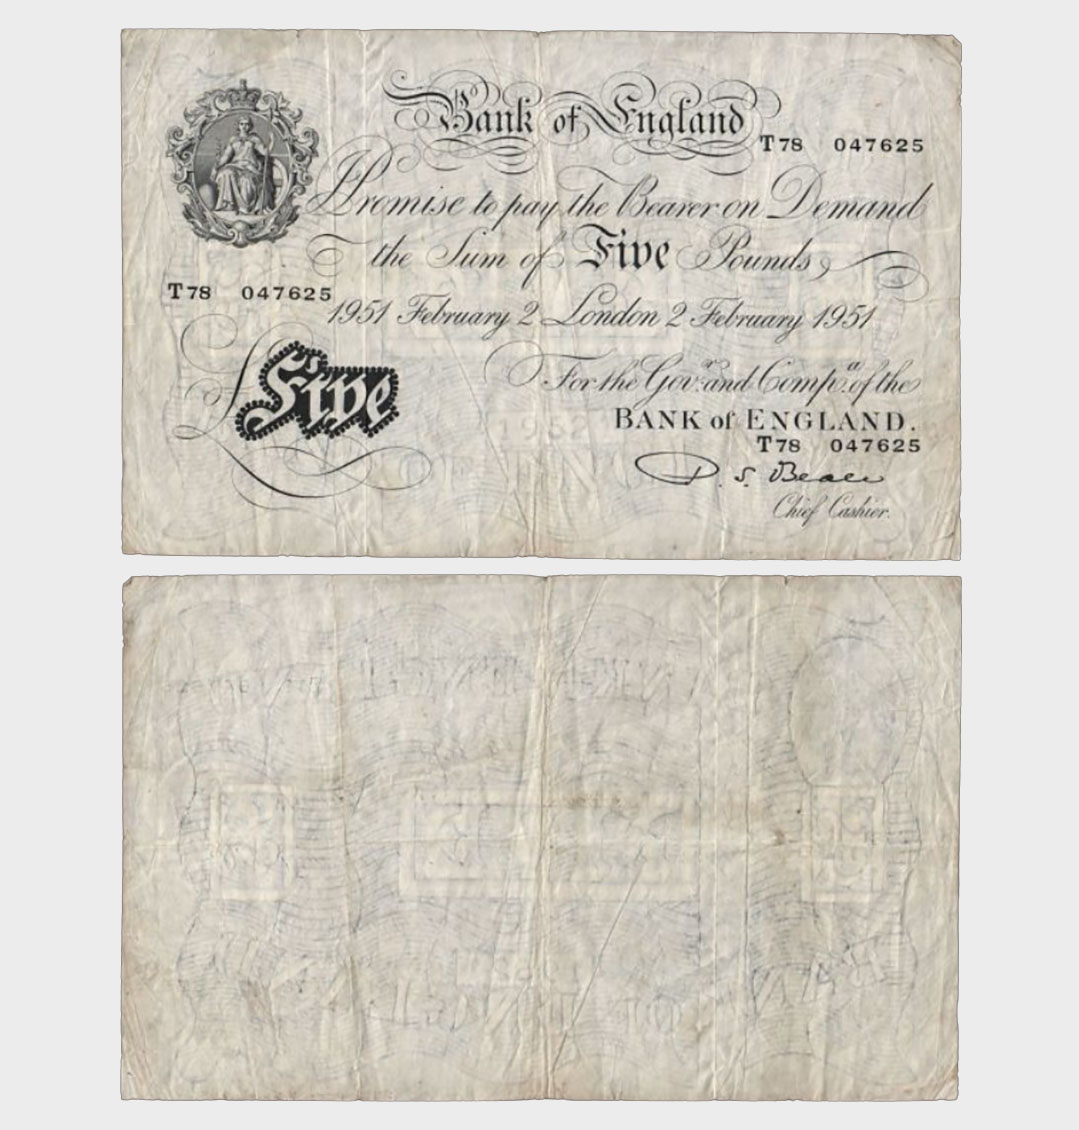 Bank of England
T78 047625
I Promise to pay the Bearer on Demand
the Sum of Five Pounds
T78 047625
1951 February 2 London 2 February 1951
£Five
For the Govr. and Compa. of the
BANK of ENGLAND.
T78 047625
P. S. Beale
Chief Cashier.